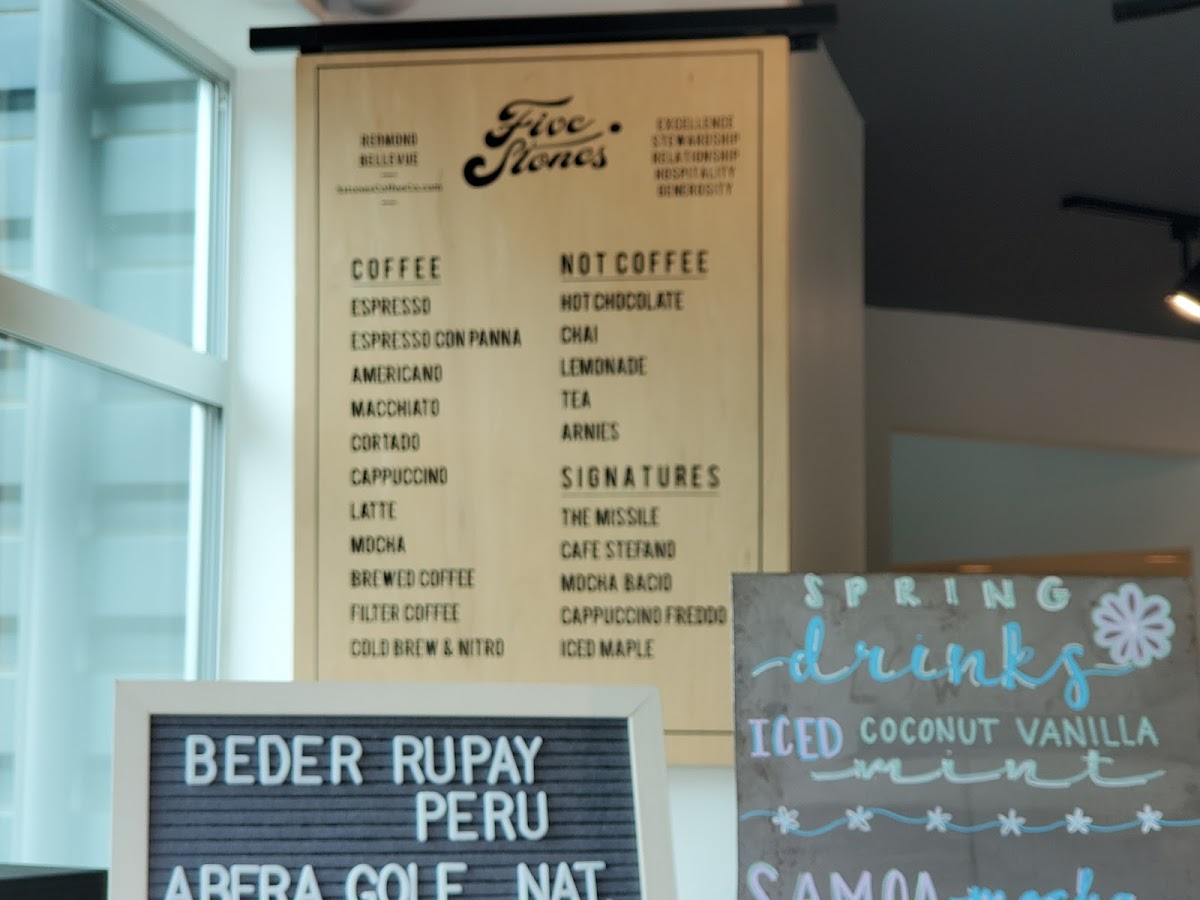 REDMOND
BELLEVUE
5stonesCoffeeCo.com
Five
Stones
EXCELLENCE
STEWARDSHIP
RELATIONSHIP
HOSPITALITY
GENEROSITY
COFFEE
ESPRESSO
ESPRESSO CON PANNA
AMERICANO
MACCHIATO
CORTADO
CAPPUCCINO
LATTE
MOCHA
BREWED COFFEE
FILTER COFFEE
COLD BREW & NITRO
NOT COFFEE
HOT CHOCOLATE
CHAI
LEMONADE
TEA
ARNIES
SIGNATURES
THE MISSILE
CAFE STEFANO
MOCHA BACIO
CAPPUCCINO FREDDO
ICED MAPLE
BEDER RUPAY
PERU
ABERA GOLE NAT.
SPRING
drinks
ICED COCONUT VANILLA
mint
SAMOA mocha